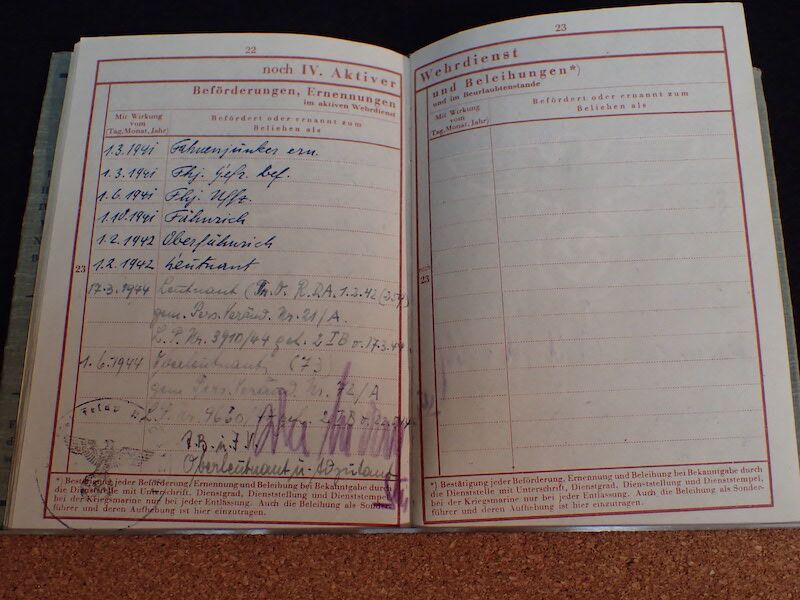 22
noch IV. Aktiver
Beförderungen, Ernennungen
im aktiven Wehrdienst
Mit Wirkung
vom
(Tag, Monat, Jahr)
Befördert oder ernannt zum
Beliehen als
1.3.1941 Fahnenjunker ern.
1.3.1941 Fhj. Gefr. bef.
1.6.1941 Fhj. Uffz.
1.10.1941 Fähnrich
1.2.1942 Oberfähnrich
23
1.2.1942 Leutnant
17.3.1944 Leutnant R.D.A. 1.2.42
gem. Pers. Veränd. Nr. 21/A
Nr. 3910/44 2 IB v. 17.3.44
1.6.1944 Oberleutnant (7)
gem. Pers. Veränd. Nr. 72/A
Oberleutnant u. Adjutant
*) Bestätigung jeder Beförderung, Ernennung und Beleihung bei Bekanntgabe durch
die Dienststelle mit Unterschrift, Dienstgrad, Dienststellung und Dienststempel,
bei der Kriegsmarine nur bei jeder Entlassung. Auch die Beleihung als Sonder-
führer und deren Aufhebung ist hier einzutragen.
23
Wehrdienst
und Beleihungen*)
und im Beurlaubtenstande
Mit Wirkung
vom
(Tag, Monat, Jahr)
Befördert oder ernannt zum
Beliehen als
23
*) Bestätigung jeder Beförderung, Ernennung und Beleihung bei Bekanntgabe durch
die Dienststelle mit Unterschrift, Dienstgrad, Dienststellung und Dienststempel,
bei der Kriegsmarine nur bei jeder Entlassung. Auch die Beleihung als Sonder-
führer und deren Aufhebung ist hier einzutragen.